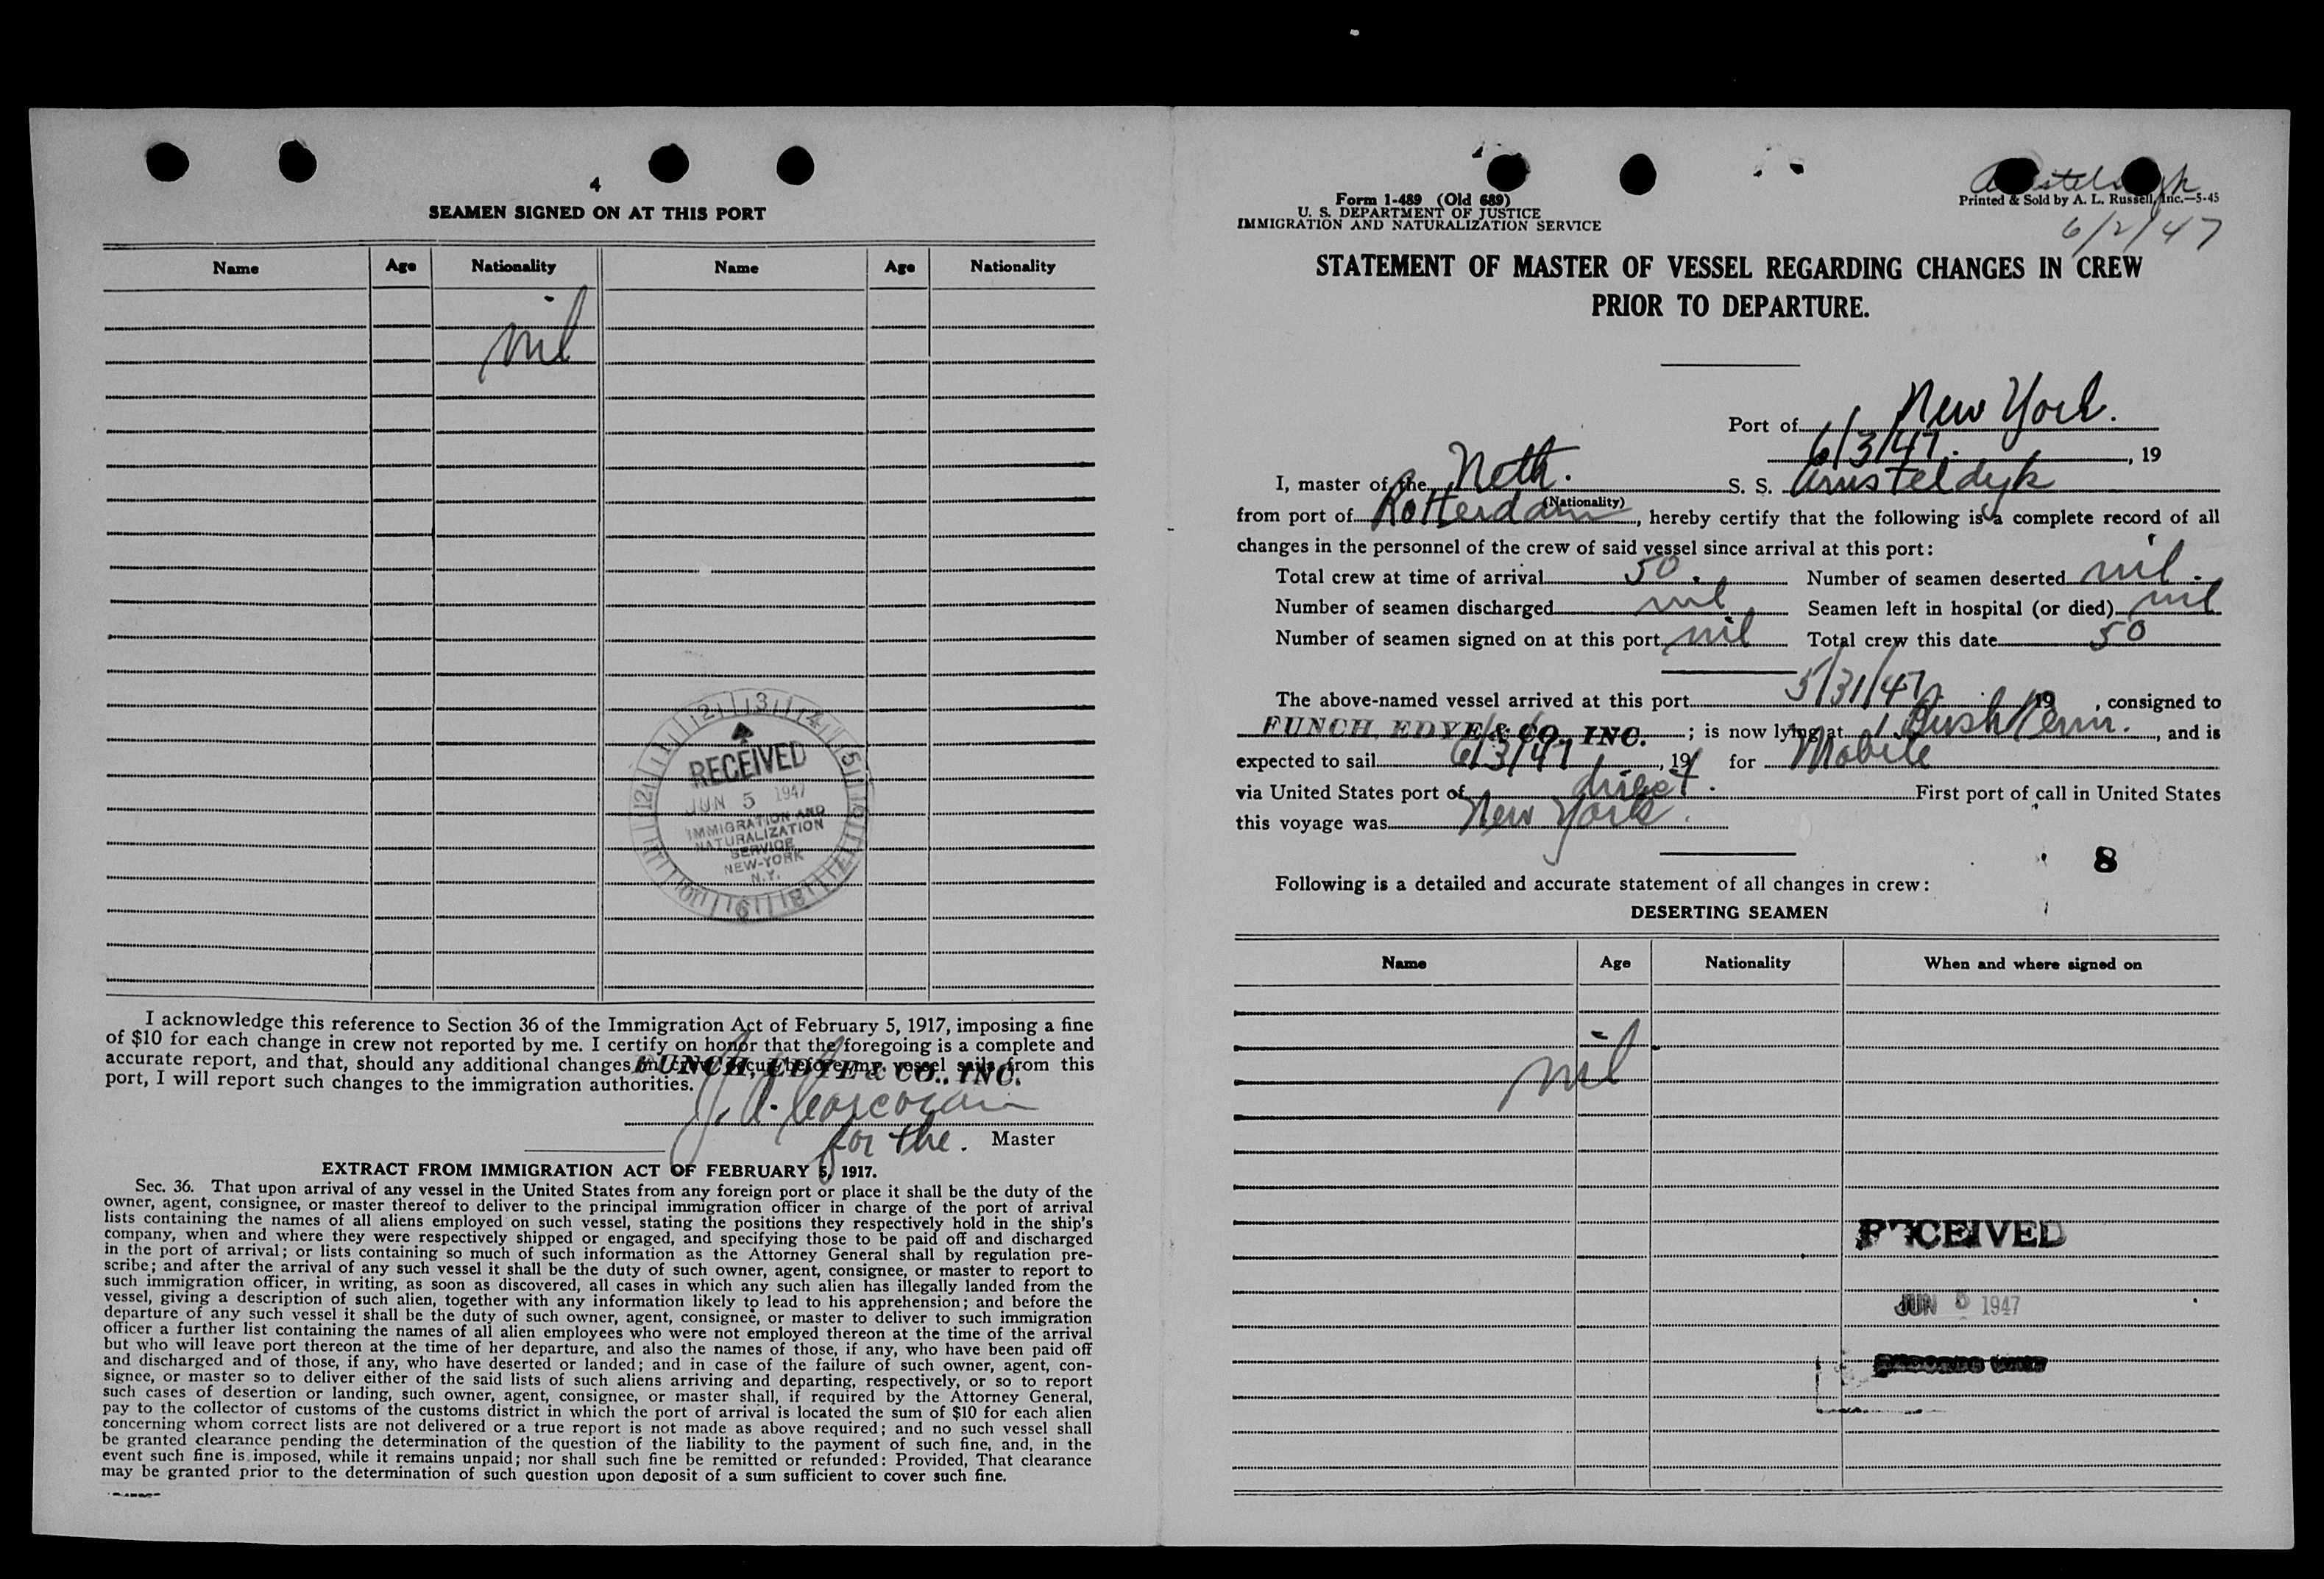 4
SEAMEN SIGNED ON AT THIS PORT
Name Age Nationality Name Age Nationality
nil
RECEIVED
JUN 5 1947
IMMIGRATION AND
NATURALIZATION
SERVICE
NEW-YORK
N.Y.
I acknowledge this reference to Section 36 of the Immigration Act of February 5, 1917, imposing a fine
of $10 for each change in crew not reported by me. I certify on honor that the foregoing is a complete and
accurate report, and that, should any additional changes in crew occur before my vessel sails from this
port, I will report such changes to the immigration authorities.
FUNCH, EDYE & CO., INC.
J. A. Corcoran
for the. Master
EXTRACT FROM IMMIGRATION ACT OF FEBRUARY 5, 1917.
Sec. 36. That upon arrival of any vessel in the United States from any foreign port or place it shall be the duty of the
owner, agent, consignee, or master thereof to deliver to the principal immigration officer in charge of the port of arrival
lists containing the names of all aliens employed on such vessel, stating the positions they respectively hold in the ship's
company, when and where they were respectively shipped or engaged, and specifying those to be paid off and discharged
in the port of arrival; or lists containing so much of such information as the Attorney General shall by regulation pre-
scribe; and after the arrival of any such vessel it shall be the duty of such owner, agent, consignee, or master to report to
such immigration officer, in writing, as soon as discovered, all cases in which any such alien has illegally landed from the
vessel, giving a description of such alien, together with any information likely to lead to his apprehension; and before the
departure of any such vessel it shall be the duty of such owner, agent, consignee, or master to deliver to such immigration
officer a further list containing the names of all alien employees who were not employed thereon at the time of the arrival
but who will leave port thereon at the time of her departure, and also the names of those, if any, who have been paid off
and discharged and of those, if any, who have deserted or landed; and in case of the failure of such owner, agent, con-
signee, or master so to deliver either of the said lists of such aliens arriving and departing, respectively, or so to report
such cases of desertion or landing, such owner, agent, consignee, or master shall, if required by the Attorney General,
pay to the collector of customs of the customs district in which the port of arrival is located the sum of $10 for each alien
concerning whom correct lists are not delivered or a true report is not made as above required; and no such vessel shall
be granted clearance pending the determination of the question of the liability to the payment of such fine, and, in the
event such fine is imposed, while it remains unpaid; nor shall such fine be remitted or refunded: Provided, That clearance
may be granted prior to the determination of such question upon deposit of a sum sufficient to cover such fine.
Form I-489 (Old 689)
U. S. DEPARTMENT OF JUSTICE
IMMIGRATION AND NATURALIZATION SERVICE
Amsteldyk
Printed & Sold by A. L. Russell, Inc.—5-45
6/2/47
STATEMENT OF MASTER OF VESSEL REGARDING CHANGES IN CREW
PRIOR TO DEPARTURE.
Port of New York.
6/3/47. , 19
I, master of the Neth. S. S. Amsteldyk
(Nationality)
from port of Rotterdam, hereby certify that the following is a complete record of all
changes in the personnel of the crew of said vessel since arrival at this port:
Total crew at time of arrival 50. Number of seamen deserted nil.
Number of seamen discharged nil Seamen left in hospital (or died) nil
Number of seamen signed on at this port nil Total crew this date 50
The above-named vessel arrived at this port 5/31/47. 19 , consigned to
FUNCH, EDYE & CO., INC. ; is now lying at 1 Bush Term. , and is
expected to sail 6/3/47 , 19 for Mobile
via United States port of direct. First port of call in United States
this voyage was New York.
8
Following is a detailed and accurate statement of all changes in crew:
DESERTING SEAMEN
Name Age Nationality When and where signed on
nil
RECEIVED
JUN 5 1947